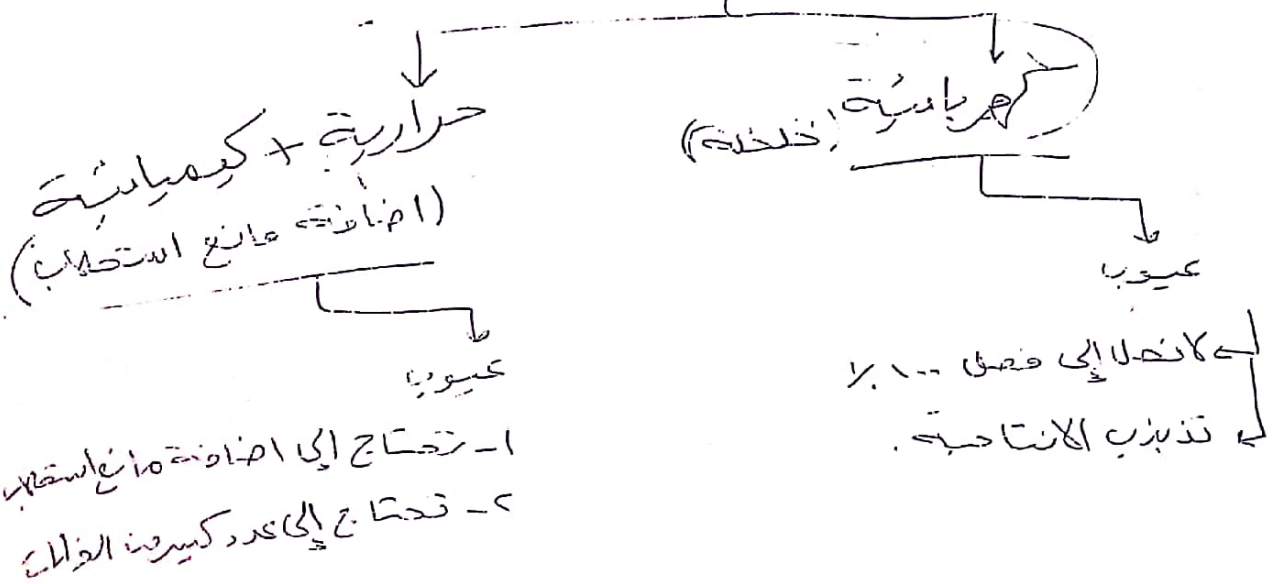 كهربائية
(خلخلة)
عيوب
لا نصل إلى فصل ١٠٠٪
تذبذب الانتاجية.
حرارية + كيميائية
(اضافة مانع استحلاب)
عيوب
١- تحتاج إلى اضافة مانع استحلاب
٢- تحتاج إلى عدد كبير من